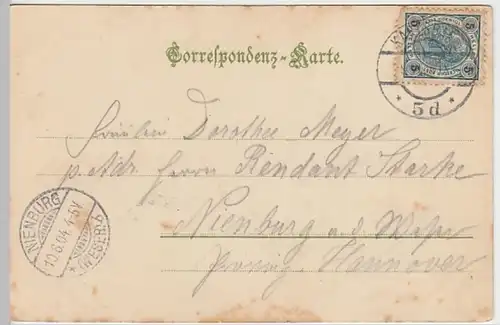 Correspondenz-Karte.
5 5
5 5
* 5d *
Fräulein Dorothee Meyer
p. Adr. Herrn Rendant Starke
Nienburg a. d. Weser
Provinz Hannover
NIENBURG
10.6.04. 4-5V
* (WESER) *